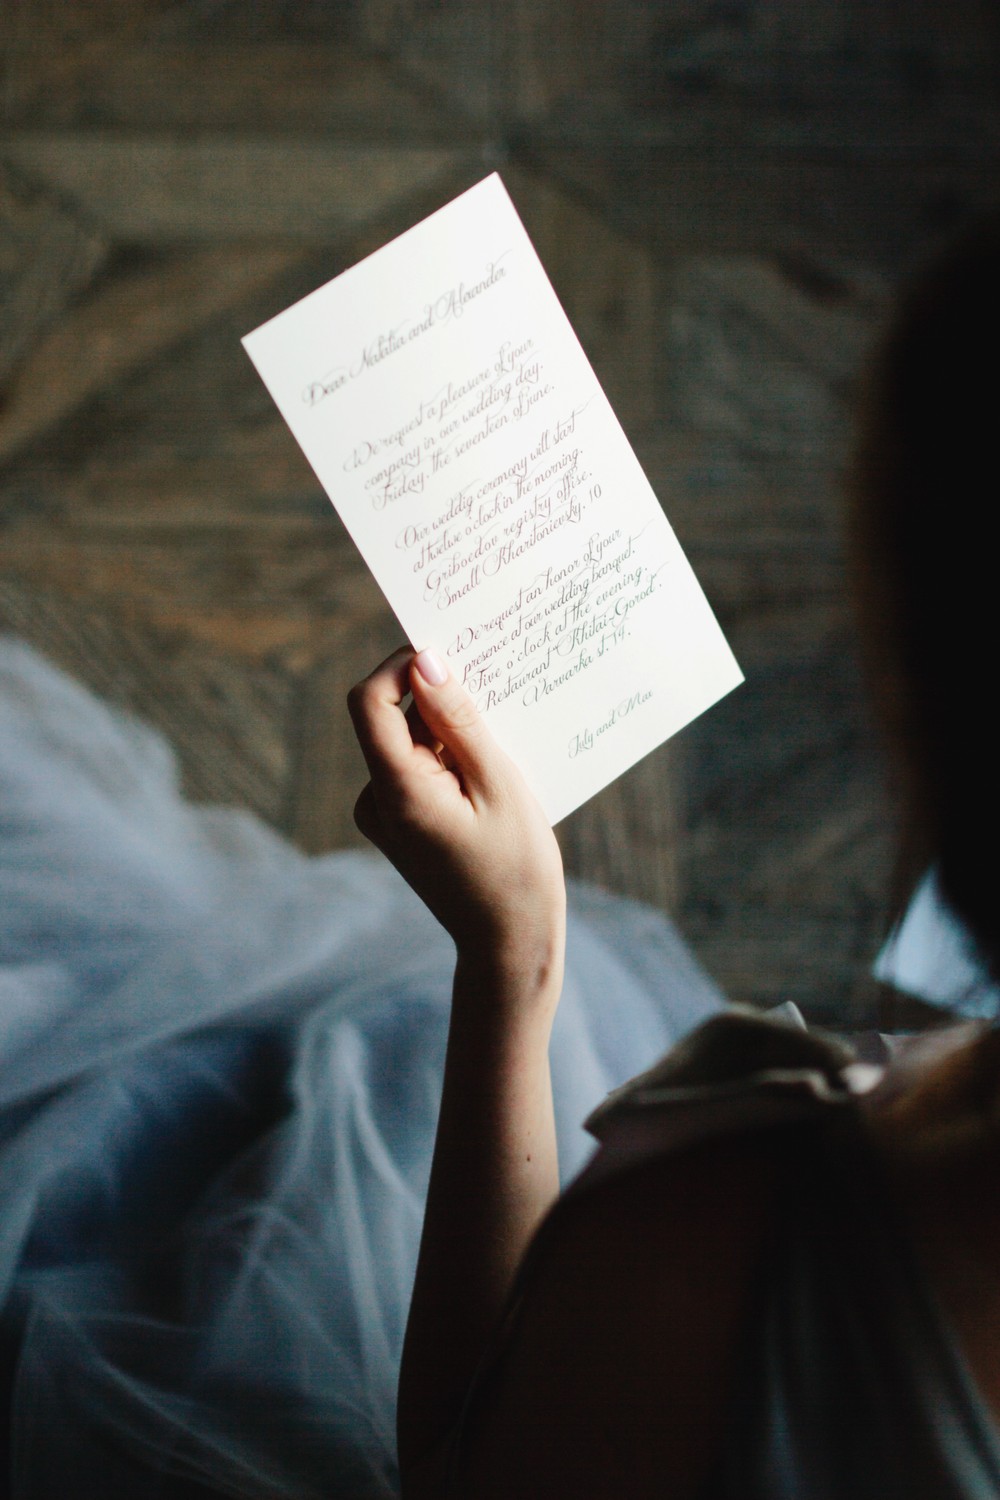 Dear Natalia and Alexander
We request a pleasure of your
company in our wedding day.
Friday, the seventeen of june.
Our weddig ceremony will start
at twelve o'clock in the morning.
Griboedov registry offise.
Small Kharitonievsky, 10
We request an honor of your
presence at our wedding banquet.
Five o'clock at the evening.
Restaurant "Khitai-Gorod".
Varvarka st. 14.
July and Max